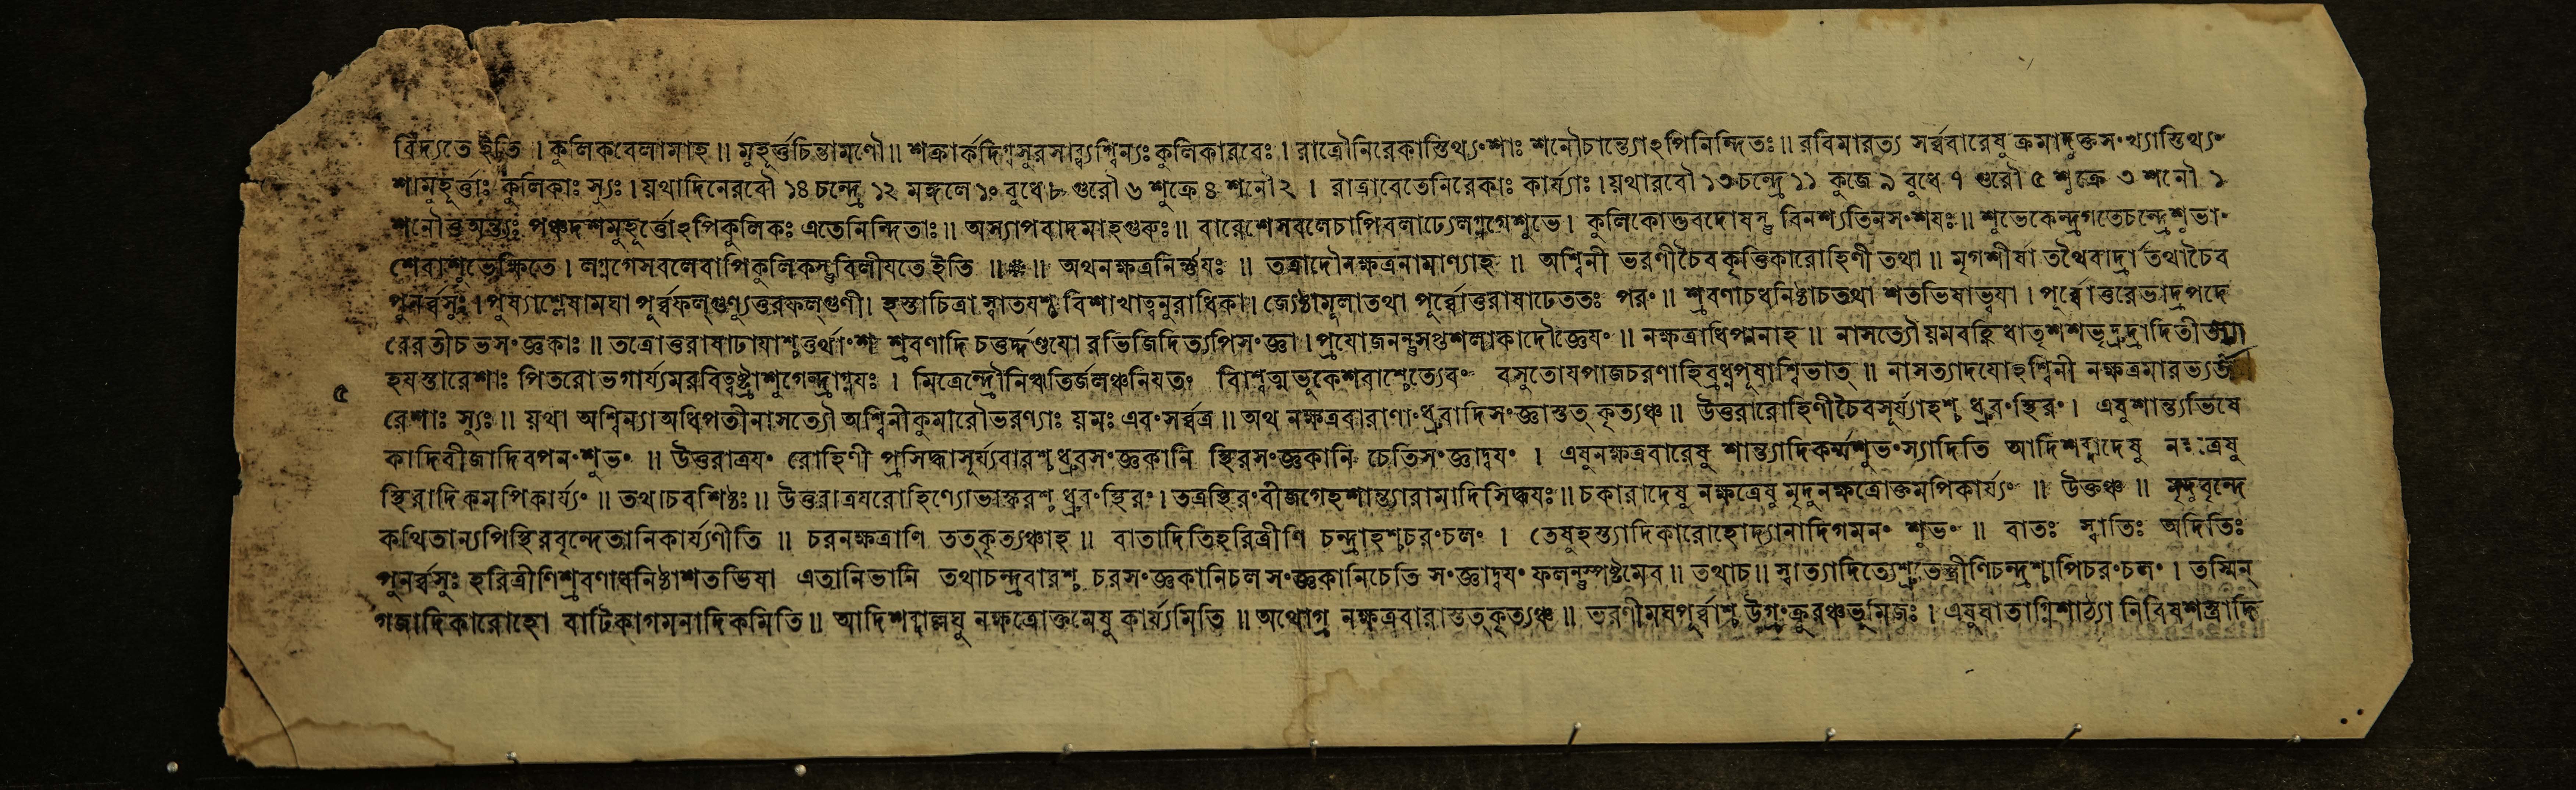 বিদ্যতে ইতি । কুলিকবেলামাহ ॥ মুহূর্ত্তচিন্তামণৌ ॥ শক্রার্কদিগ্বসুরসাব্ধ্যশ্বিন্যঃ কুলিকারবেঃ । রাত্রৌনিরেকাস্তিথ্যংশাঃ শনৌচান্ত্যোঽপিনিন্দিতঃ ॥ রবিমারভ্য সর্ব্ববারেষু ক্রমাদুক্তসংখ্যাস্তিথ্যং
শামুহূর্ত্তাঃ কুলিকাঃ স্যুঃ । যথাদিনেরবৌ ১৪ চন্দ্রে ১২ মঙ্গলে ১০ বুধে ৮ গুরৌ ৬ শুক্রে ৪ শনৌ ২ । রাত্রাবেতেনিরেকাঃ কার্য্যাঃ । যথারবৌ ১৩ চন্দ্রে ১১ কুজে ৯ বুধে ৭ গুরৌ ৫ শুক্রে ৩ শনৌ ১
শনৌ অন্ত্যঃ পঞ্চদশমুহূর্ত্তোঽপিকুলিকঃ এতেনিন্দিতাঃ ॥ অস্যাপবাদমাহগুরুঃ ॥ বারেশেসবলেচাপিবলাঢ্যেলগ্নগেশুভে । কুলিকোদ্ভবদোষস্তু বিনশ্যতিনসংশযঃ ॥ শুভেকেন্দ্রগতেচন্দ্রেশুভাং
শেবাশুভেক্ষিতে । লগ্নগেসবলেবাপিকুলিকস্তুবিলীযতে ইতি ॥ ॥ অথনক্ষত্রনির্ণ্ণযঃ ॥ তত্রাদৌনক্ষত্রনামাণ্যাহ ॥ অশ্বিনী ভরণীচৈবকৃত্তিকারোহিণী তথা ॥ মৃগশীর্ষা তথৈবার্দ্রা তথাচৈব
পুনর্ব্বসুঃ । পুষ্যাশ্লেষামঘা পূর্ব্বফল্গুণ্যুত্তরফল্গুণী । হস্তাচিত্রা স্বাতযশ্চ বিশাখাত্বনুরাধিকা । জ্যেষ্ঠামূলাতথা পূর্ব্বোত্তরাষাঢেততঃ পরং ॥ শ্রবণাচধনিষ্ঠাচতথা শতভিষাভ্বযা । পূর্ব্বোত্তরেভাদ্রপদে
রেবতীচভসংজ্ঞকাঃ ॥ তত্রোত্তরাষাঢাযাশ্চতুর্থাংশ শ্রবণাদি চতুর্দ্দণ্ডযো রভিজিদিত্যপিসংজ্ঞা । প্রযোজনন্তুসপ্তশলাকাদৌজ্ঞেযং ॥ নক্ষত্রাধিপানাহ ॥ নাসত্যৌযমবহ্নিধাতৃশশভৃদ্রুদ্রাদিতী
হযস্তারেশাঃ পিতরোভগার্য্যমরবিত্বষ্ট্রাশুগেন্দ্রাগ্নযঃ । মিত্রেন্দ্রৌনিঋতির্জলঞ্চনিযতং বসুতোযপাজচরণাহির্বুধ্নপূষাশ্বিভাত্ ॥ নাসত্যাদযোঽশ্বিনী নক্ষত্রমারভ্য
৫
রেশাঃ স্যুঃ ॥ যথা অশ্বিন্যা অধিপতীনাসত্যৌ অশ্বিনীকুমারৌভরণ্যাঃ যমঃ এবংসর্ব্বত্র ॥ অথ নক্ষত্রবারাণাংধ্রুবাদিসংজ্ঞাস্তত্ কৃত্যঞ্চ ॥ উত্তরারোহিণীচৈবসূর্য্যাহশ্চ ধ্রুবংস্থিরং । এষুশান্ত্যভিষে
কাদিবীজাদিবপনংশুভং ॥ উত্তরাত্রযং রোহিণী প্রসিদ্ধাসূর্য্যবারশ্চধ্রুবসংজ্ঞকানি স্থিরসংজ্ঞকানি চেতিসংজ্ঞাদ্বযং । এষুনক্ষত্রবারেষু শান্ত্যাদিকর্ম্মশুভংস্যাদিতি আদিশব্দাদেষু
স্থিরাদিকমপিকার্য্যং ॥ তথাচবশিষ্ঠঃ ॥ উত্তরাত্রযরোহিণ্যোভাস্করশ্চ ধ্রুবংস্থিরং । তত্রস্থিরংবীজগেহশান্ত্যারামাদিসিদ্ধযঃ ॥ চকারাদেষু নক্ষত্রেষু মৃদুনক্ষত্রোক্তমপিকার্য্যং ॥ উক্তঞ্চ ॥ মৃদুবৃন্দে
কথিতান্যপিস্থিরবৃন্দেতানিকার্য্যণীতি ॥ চরনক্ষত্রাণি তত্কৃত্যঞ্চাহ ॥ বাতাদিতিহরিত্রীণি চন্দ্রাহশ্চচরংচলং । তেষুহস্ত্যাদিকারোহোদ্যানাদিগমনং শুভং ॥ বাতঃ স্বাতিঃ অদিতিঃ
পুনর্ব্বসুঃ হরিত্রীণিশ্রবণাধনিষ্ঠাশতভিষা এতানিভানি তথাচন্দ্রবারশ্চ চরসংজ্ঞকানিচলসংজ্ঞকানিচেতি সংজ্ঞাদ্বযং ফলন্তুস্পষ্টমেব ॥ তথাচ ॥ স্বাত্যাদিত্যেশ্রুতেস্ত্রীণিচন্দ্রশ্চাপিচরংচলং । তস্মিন্
গজাদিকারোহো বাটিকাগমনাদিকমিতি ॥ আদিশব্দাল্লঘু নক্ষত্রোক্তমেষু কার্য্যমিতি ॥ অথোগ্র নক্ষত্রবারাস্তত্কৃত্যঞ্চ ॥ ভরণীমঘপূর্ব্বাশ্চ উগ্রংক্রুরঞ্চভূমিজঃ । এষুঘাতাগ্নিশাঠ্যা নিবিষশস্ত্রাদি